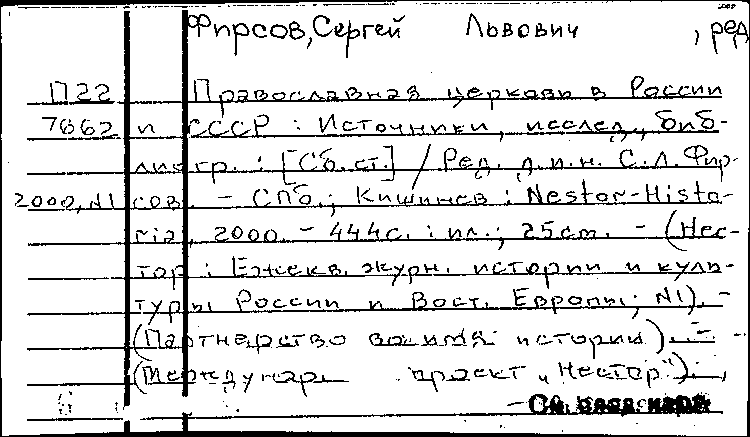 Фирсов, Сергей Львович , ред
П22 Православная церковь в России
7662 и СССР : Источники, исслед., биб-
лиогр. : [Сб. ст.] / Ред. д.и.н. С.Л. Фир-
2000, N1 сов. - СПб.; Кишинев : Nestor-Histo-
ria, 2000. - 444с. : ил.; 25см. - (Нес-
тор : Ежекв. журн. истории и куль-
туры России и Вост. Европы; N1). -
(Партнерство во имя истории). -
(Междунар. проект „Нестор").
- См. след. карт.